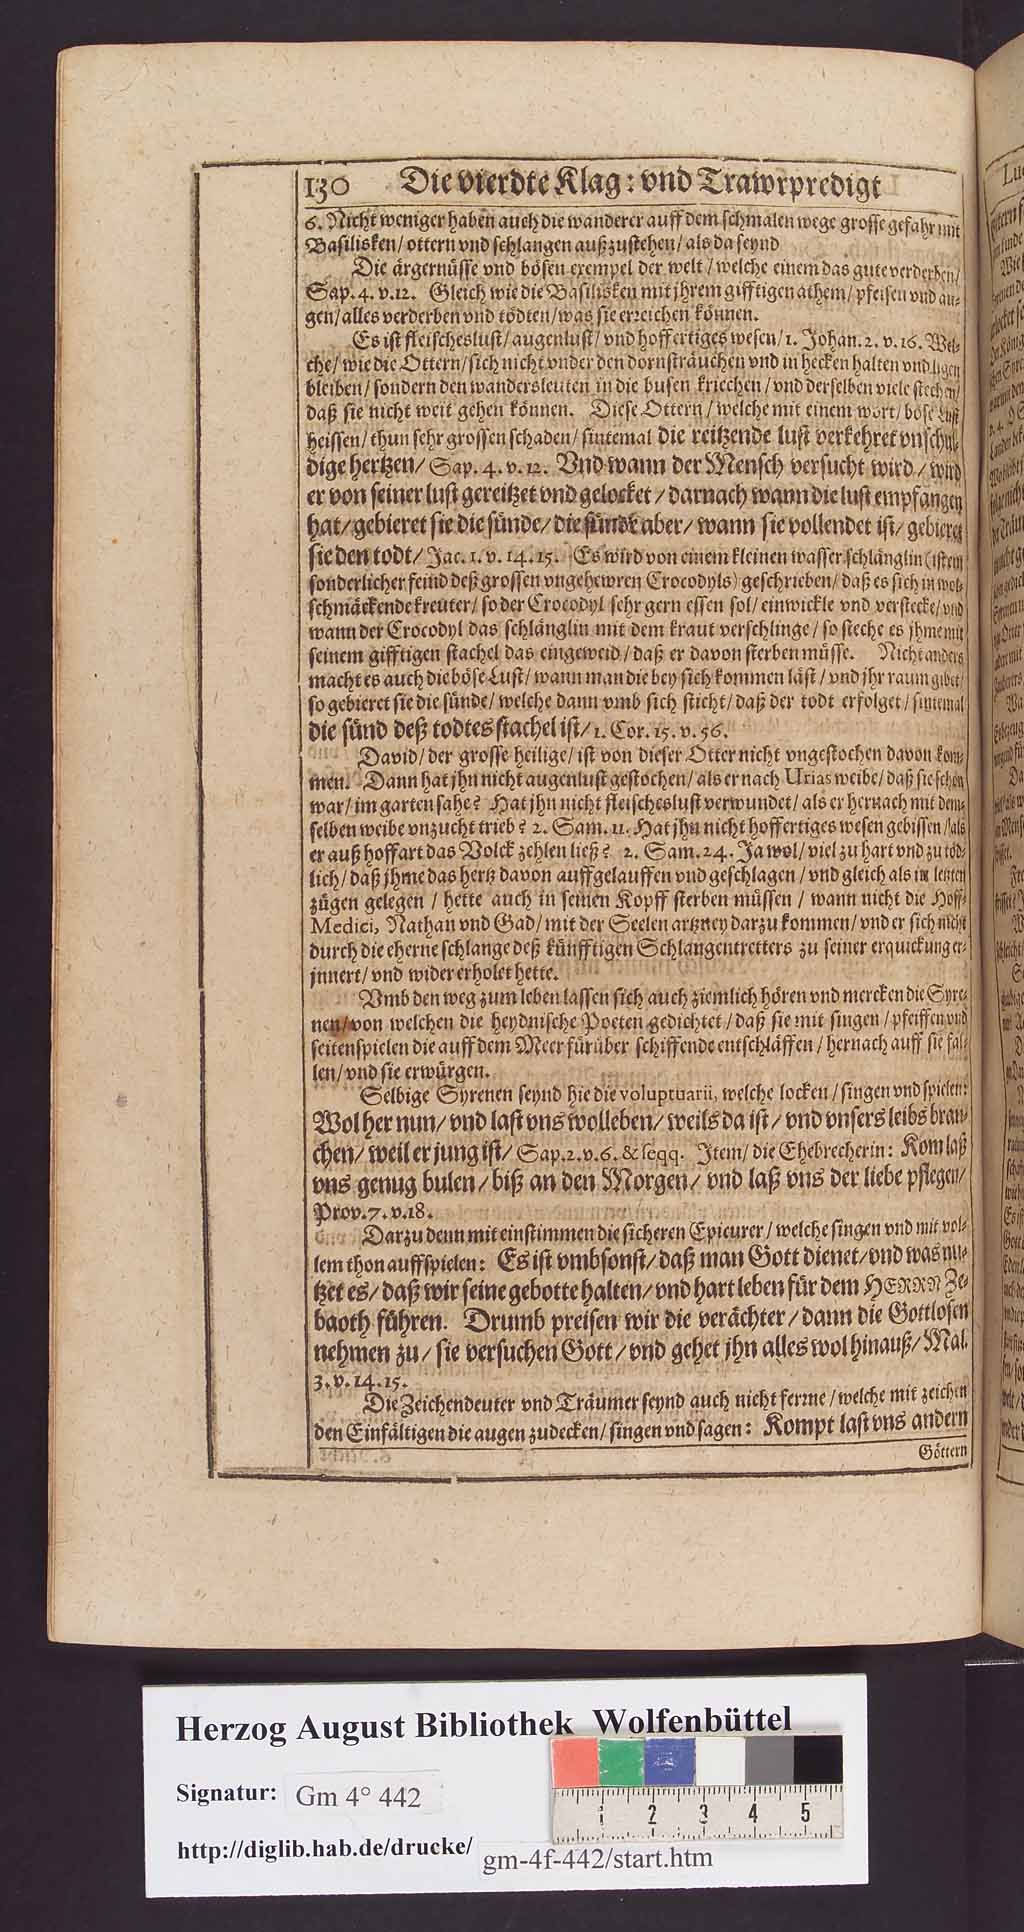 130 Die vierdte Klag: vnd Trawrpredigt
6. Nicht weniger haben auch die wanderer auff dem schmalen wege grosse gefahr mit
Basilisken/ ottern vnd schlangen außzustehen/ als da seynd
Die ärgernüsse vnd bösen exempel der welt/ welche einem das gute verderben/
Sap. 4. v. 12. Gleich wie die Basilisken mit jhrem gifftigen athem/ pfeisen vnd au-
gen/ alles verderben vnd tödten/ was sie erreichen können.
Es ist fleischeslust/ augenlust/ vnd hoffertiges wesen/ 1. Johan. 2. v. 16. Wel-
che/ wie die Ottern/ sich nicht vnder den dornsträuchen vnd in hecken halten vnd ligen
bleiben/ sondern den wandersleuten in die busen kriechen/ vnd derselben viele stechen/
daß sie nicht weit gehen können. Diese Ottern/ welche mit einem wort/ böse Lust
heissen/ thun sehr grossen schaden/ sintemal die reitzende lust verkehret vnschul-
dige hertzen/ Sap. 4. v. 12. Vnd wann der Mensch versucht wird/ wird
er von seiner lust gereitzet vnd gelocket/ darnach wann die lust empfangen
hat/ gebieret sie die sünde/ die sünde aber/ wann sie vollendet ist/ gebieret
sie den todt/ Jac. 1. v. 14. 15. Es wird von einem kleinen wasser schlänglin (ist ein
sonderlicher feind deß grossen vngehewren Crocodyls) geschrieben/ daß es sich in wol-
schmäckende kreuter/ so der Crocodyl sehr gern essen sol/ einwickle vnd verstecke/ vnd
wann der Crocodyl das schlänglin mit dem kraut verschlinge/ so steche es jhme mit
seinem gifftigen stachel das eingeweid/ daß er davon sterben müsse. Nicht anders
macht es auch die böse Lust/ wann man die bey sich kommen läst/ vnd jhr raum gibet/
so gebieret sie die sünde/ welche dann vmb sich sticht/ daß der todt erfolget/ sintemal
die sünd deß todtes stachel ist/ 1. Cor. 15. v. 56.
David/ der grosse heilige/ ist von dieser Otter nicht vngestochen davon kom-
men. Dann hat jhn nicht augenlust gestochen/ als er nach Urias weibe/ daß sie schön
war/ im garten sahe? Hat jhn nicht fleischeslust verwundet/ als er hernach mit dem-
selben weibe vnzucht trieb? 2. Sam. 11. Hat jhn nicht hoffertiges wesen gebissen/ als
er auß hoffart das Volck zehlen ließ? 2. Sam. 24. Ja wol/ viel zu hart vnd zu töd-
lich/ daß jhme das hertz davon auffgelauffen vnd geschlagen/ vnd gleich als in letzten
zügen gelegen/ hette auch in seinen Kopff sterben müssen/ wann nicht die Hoff-
Medici, Nathan vnd Gad/ mit der Seelen artzney darzu kommen/ vnd er sich nicht
durch die eherne schlange deß künfftigen Schlangentretters zu seiner erquickung er-
jnnert/ vnd wider erholet hette.
Vmb den weg zum leben lassen sich auch ziemlich hören vnd mercken die Syre-
nen/ von welchen die heydnische Poeten gedichtet/ daß sie mit singen/ pfeiffen vnd
seitenspielen die auff dem Meer fürüber schiffende entschläffen/ hernach auff sie fal-
len/ vnd sie erwürgen.
Selbige Syrenen seynd hie die voluptuarii, welche locken/ singen vnd spielen:
Wol her nun/ vnd last vns wolleben/ weils da ist/ vnd vnsers leibs brau-
chen/ weil er jung ist/ Sap. 2. v. 6. & seqq. Item/ die Ehebrecherin: Kom laß
vns genug bulen/ biß an den Morgen/ vnd laß vns der liebe pflegen/
Prov. 7. v. 18.
Darzu denn mit einstimmen die sicheren Epicurer/ welche singen vnd mit vol-
lem thon auffspielen: Es ist vmbsonst/ daß man Gott dienet/ vnd was nu-
tzet es/ daß wir seine gebotte halten/ vnd hart leben für dem HERRN Ze-
baoth führen. Drumb preisen wir die verächter/ dann die Gottlosen
nehmen zu/ sie versuchen Gott/ vnd gehet jhn alles wol hinauß/ Mal.
3. v. 14. 15.
Die Zeichendeuter vnd Träumer seynd auch nicht ferme/ welche mit zeichen
den Einfältigen die augen zudecken/ singen vnd sagen: Kompt last vns andern
Göttern
Herzog August Bibliothek Wolfenbüttel
Signatur: Gm 4° 442
1 2 3 4 5
http://diglib.hab.de/drucke/ gm-4f-442/start.htm